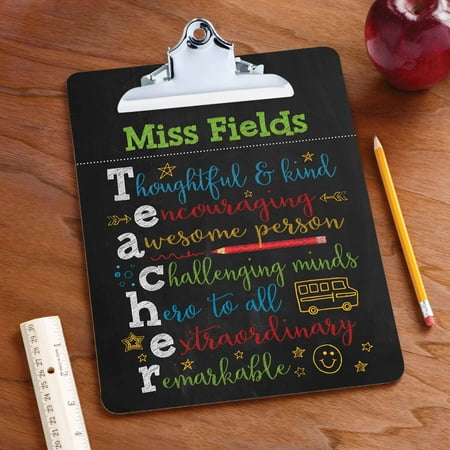 Miss Fields
Thoughtful & kind
encouraging
awesome person
challenging minds
hero to all
extraordinary
remarkable
1
2
3
4